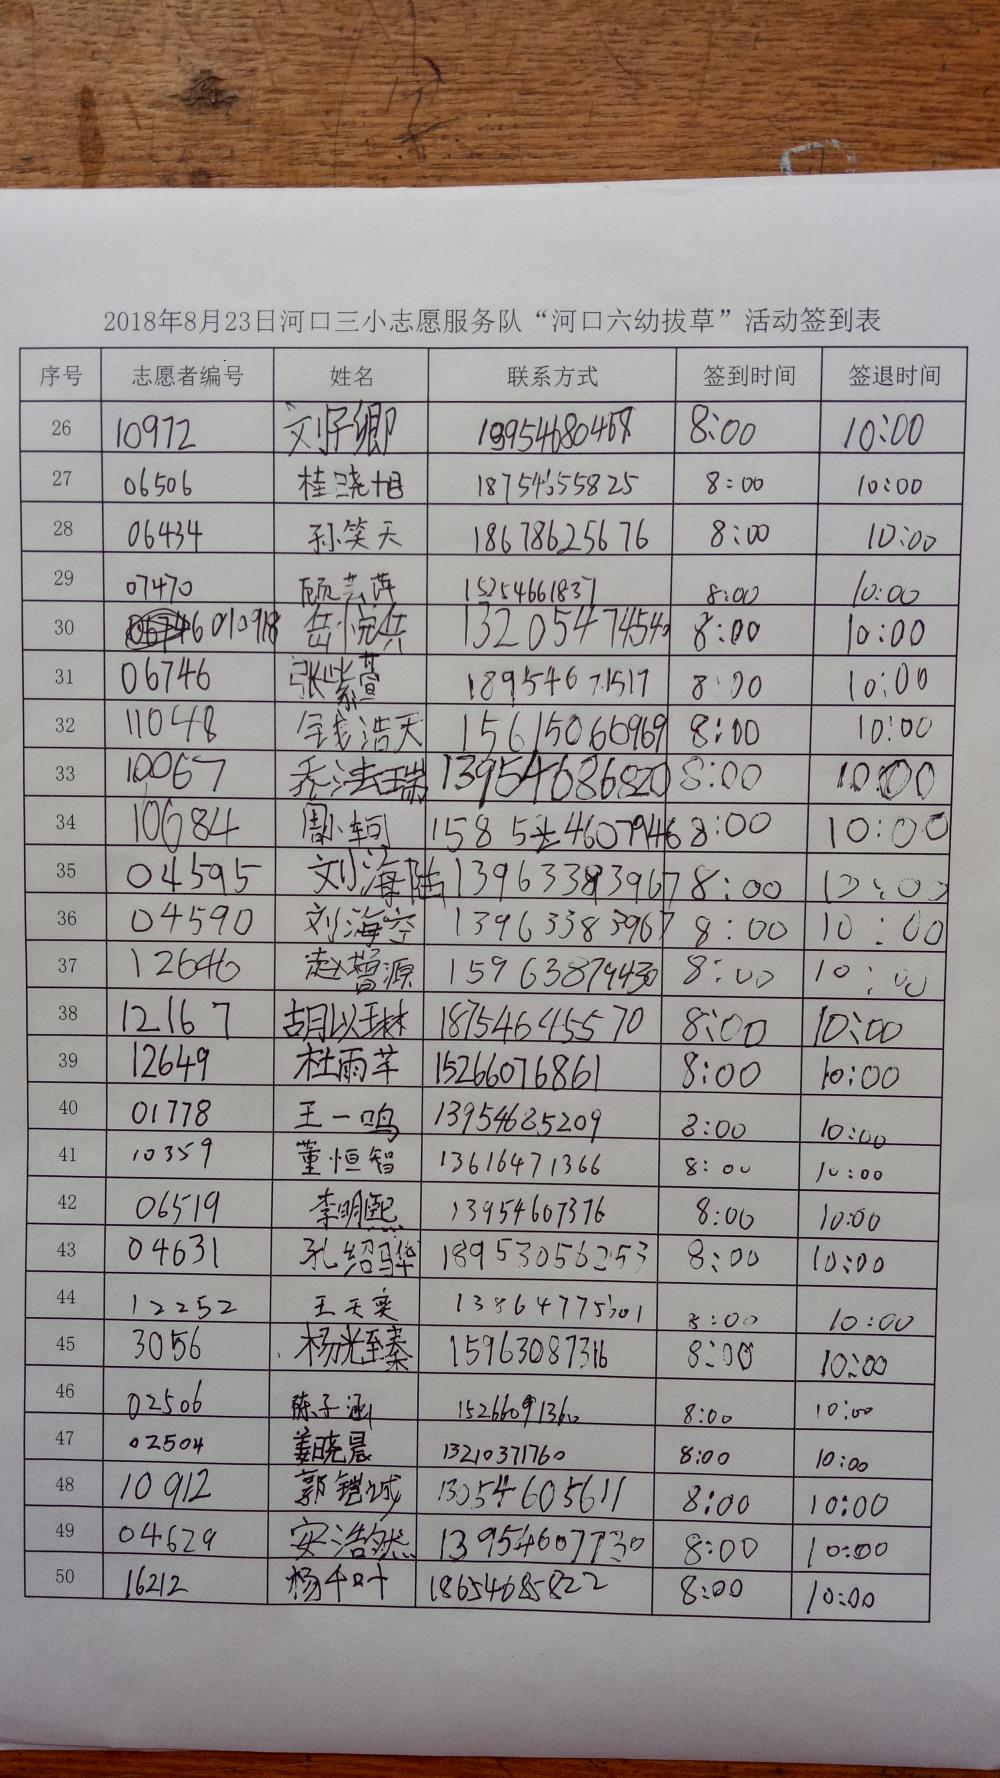 2018年8月23日河口三小志愿服务队“河口六幼拔草”活动签到表
序号 志愿者编号 姓名 联系方式 签到时间 签退时间
26 10972 刘子卿 19954680468 8:00 10:00
27 06506 桂晓旭 18754655825 8:00 10:00
28 06434 孙笑天 18678625676 8:00 10:00
29 07470 顾芸萍 15254661837 8:00 10:00
30 010918 岳悦兵 13205474540 8:00 10:00
31 06746 张紫萱 18954671517 8:00 10:00
32 11048 钱浩天 15615060969 8:00 10:00
33 10067 乔法瑞 13954686820 8:00 10:00
34 10684 周小轲 15854607946 8:00 10:00
35 04595 刘海陆 13963383967 8:00 10:00
36 04590 刘海空 13963383967 8:00 10:00
37 12646 赵曾源 15963879430 8:00 10:00
38 12167 胡以琳 18754645570 8:00 10:00
39 12649 杜雨芊 15266076861 8:00 10:00
40 01778 王一鸣 13954685209 8:00 10:00
41 10359 董恒智 13616471366 8:00 10:00
42 06519 李明熙 13954607376 8:00 10:00
43 04631 孔绍骅 18953056253 8:00 10:00
44 12252 王天奕 13864775301 8:00 10:00
45 3056 杨光至臻 15963087316 8:00 10:00
46 02506 陈子涵 15266091360 8:00 10:00
47 02504 姜晓晨 13210371760 8:00 10:00
48 10912 郭铠诚 13054605611 8:00 10:00
49 04629 安浩然 13954607730 8:00 10:00
50 16212 杨千叶 18654685822 8:00 10:00